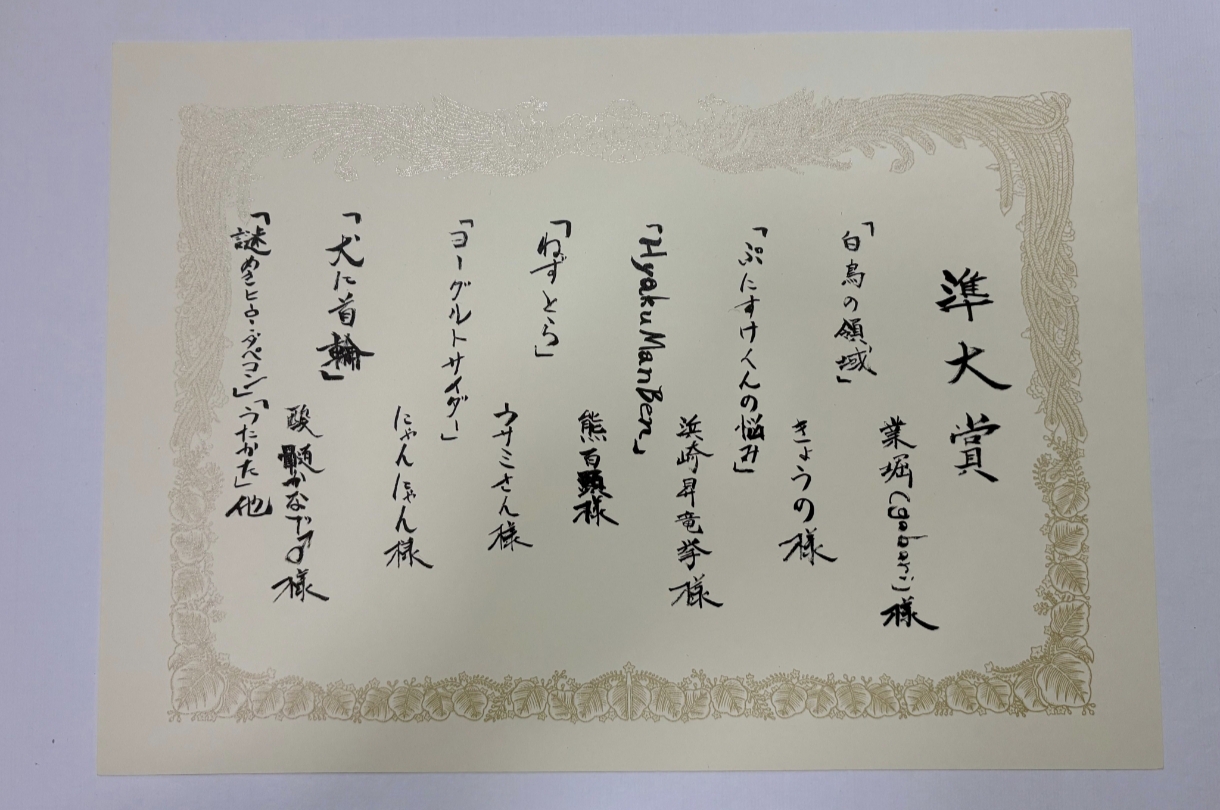 準大賞
業堀(gobori)様
「白鳥の領域」
きょうの様
「ぷにすけくんの悩み」
浜崎昇竜拳様
「HyakuManBen」
熊百頭様
「ねずとら」
ウサミさん様
「ヨーグルトサイダー」
にゃんにゃん様
「犬に首輪」
酸髄かなで♂様
「うたかた」他